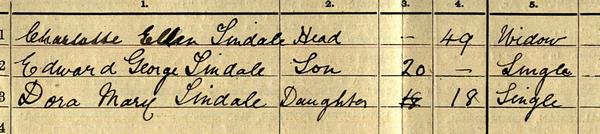 1. 2. 3. 4. 5.
1 Charlotte Ellen Tindale Head - 49 Widow
2 Edward George Tindale Son 20 - Single
3 Dora Mary Tindale Daughter 18 18 Single
4